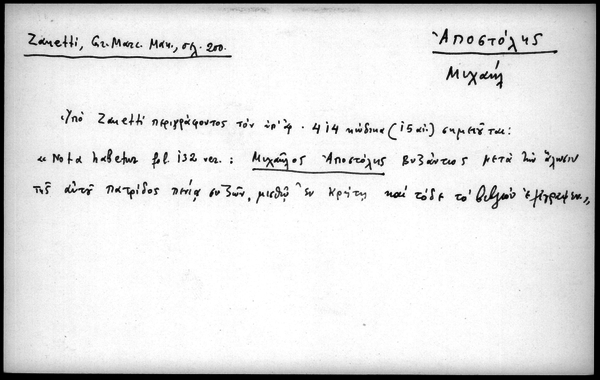 Zanetti, Gr. Marc. Man., σελ. 200.
Ἀποστόλης
Μιχαήλ
Ὑπό Zanetti περιγράφοντος τόν ὑπ' ἀρ. 414 κώδικα (15 αἰ.) σημειοῦται:
« Nota habetur fol. 132 ver. : Μιχαῆλος Ἀποστόλης Βυζάντιος μετά τήν ἅλωσιν
τῆς αὐτοῦ πατρίδος πενίᾳ συζῶν, μισθῷ ἐν Κρήτῃ καί τόδε τό βιβλίον ἐξέγραψεν »